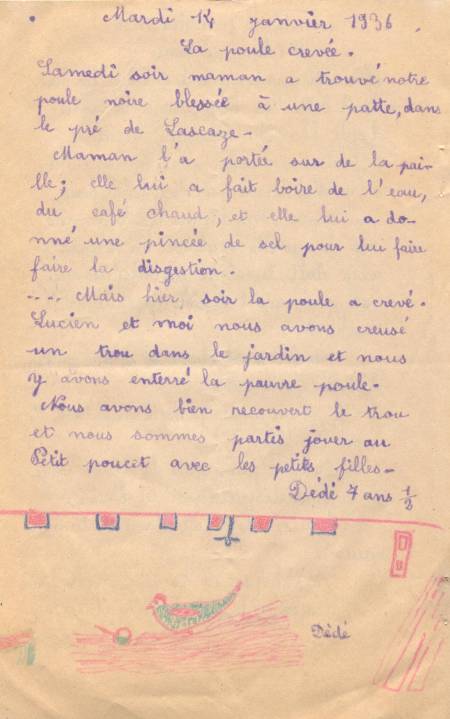 Mardi 14 janvier 1936
La poule crevée.
Samedi soir maman a trouvé notre
poule noire blessée à une patte, dans
le pré de Lascaze-
Maman l'a portée sur de la pai-
lle; elle lui a fait boire de l'eau,
du café chaud, et elle lui a do-
nné une pincée de sel pour lui faire
faire la disgestion.
.... Mais hier soir la poule a crevé.
Lucien et moi nous avons creusé
un trou dans le jardin et nous
y avons enterré la pauvre poule.
Nous avons bien recouvert le trou
et nous sommes partis jouer au
Petit poucet avec les petits filles-
Dédé 7 ans 1/2
Dédé